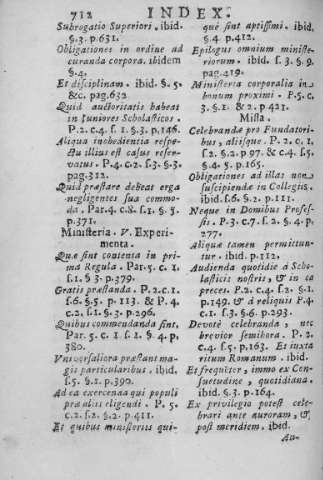 712 INDEX.
Subrogatio Superiori. ibid.
§. 3. p. 631.
Obligationes in ordine ad
curanda corpora. ibidem
§. 4.
Et disciplinam. ibid. §. 5.
&c. pag. 632
Quid auctoritatis habeat
in Iuniores Scholasticos.
P. 2. c. 4. s. 1. §. 3. p. 146.
Aliqua inobedientia respe-
ctu illius est casus reser-
vatus. P. 4. c. 2. s. 3. §. 3.
pag. 312.
Quid præstare debeat erga
negligentes sua commo-
da. Par. 4. c. 8. s. 1. §. 5.
p. 371.
Ministeria. V. Experi-
menta.
Quæ sint contenta in pri-
ma Regula. Par. 5. c. 1.
s. 1. § 3. p. 379.
Gratis præstanda. P. 2. c. 1.
s. 6. §. 5. p. 113. & P. 4.
c. 2. s. 1. §. 3. p. 296.
Quibus commendanda sint.
Par. 5. c. 1. s. 1. §. 4. p.
380.
Vniversaliora præstant ma-
gis particularibus. ibid.
s. 5. §. 2. p. 390.
Ad ea exercenda qui populi
præ aliis eligendi. P. 5.
c. 2. s. 2. §. 2. p. 411.
Et quibus ministeriis qui-
que sint aptissimi. ibid.
§. 4. p. 412.
Epilogus omnium ministe-
riorum. ibid. s. 3. §. 9.
pag. 419.
Ministeria corporalia in
bonum proximi. P. 5. c.
3. §. 1. & 2. p. 421.
Missa.
Celebrandæ pro Fundatori-
bus, aliisque. P. 2. c. 1.
s. 2. §. 2. p. 97. & c. 4. s. 5.
§. 4. 5. p. 165.
Obligationes ad illas non
suscipiendæ in Collegiis.
ibid. s. 6. §. 2. p. 111.
Neque in Domibus Profes-
sis. P. 3. c. 7. s. 2. §. 4. p.
277.
Aliquæ tamen permittun-
tur. ibid. p. 112.
Audienda quotidie a Scho-
lasticis nostris, & in ea
preces. P. 2. c. 4. s. 2. §. 1.
p. 149. & a reliquis P. 4.
c. 1. s. 3. §. 6. p. 293.
Devotè celebranda, nec
brevior semihora. P. 2.
c. 4. s. 5. p. 163. Et iuxta
ritum Romanum. ibid.
Et frequēter, immo ex Con-
suetudine, quotidiana.
ibid. §. 3. p. 164.
Ex privilegio potest cele-
brari ante auroram, &
post meridiem. ibid.
Au-